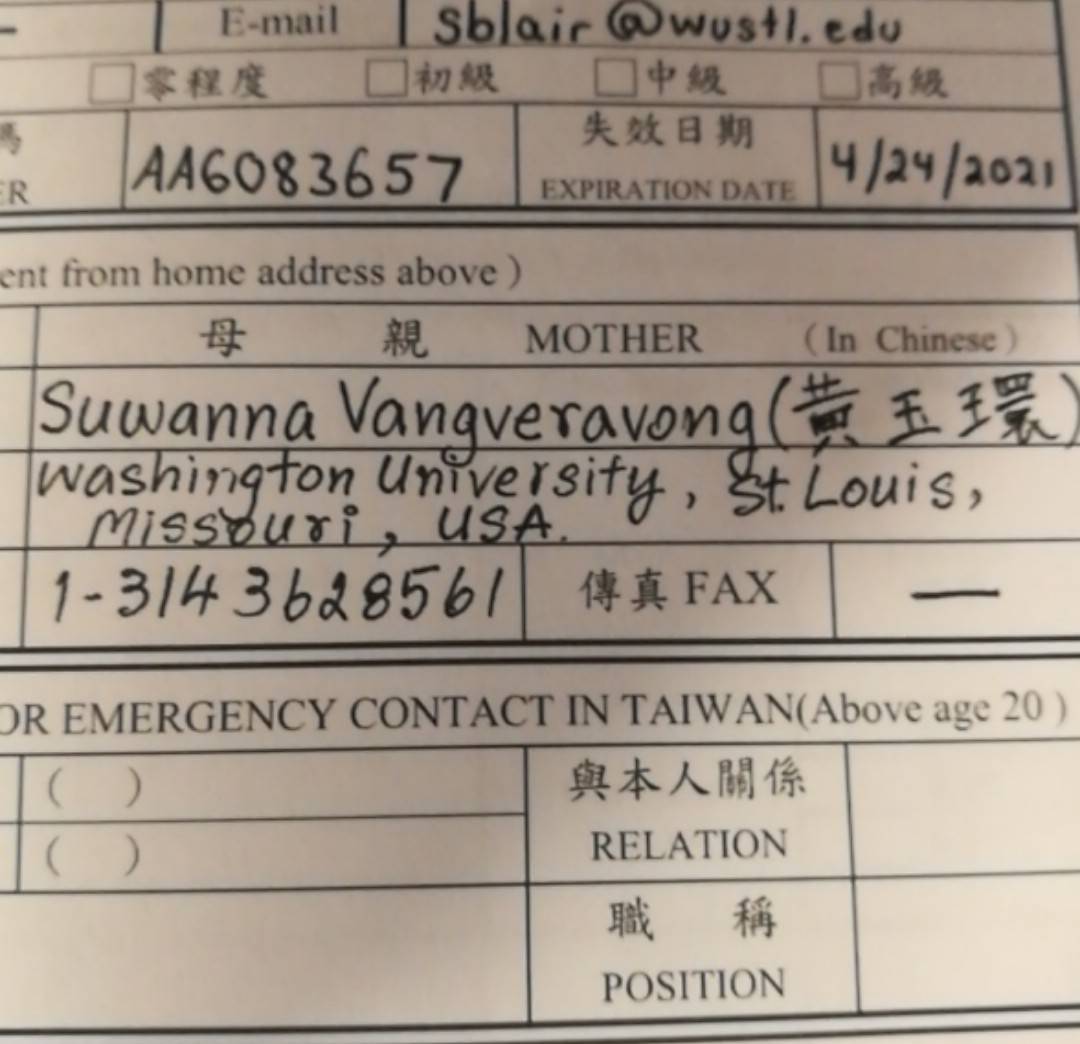 E-mail sblair@wustl.edu
□零程度 □初級 □中級 □高級
碼 失效日期
ER AA6083657 EXPIRATION DATE 4/24/2021
ent from home address above )
母 親 MOTHER (In Chinese)
Suwanna Vangveravong (黃玉環)
Washington University, St. Louis,
Missouri, USA.
1-3143628561 傳真 FAX —
OR EMERGENCY CONTACT IN TAIWAN(Above age 20 )
( ) 與本人關係
( ) RELATION
職 稱
POSITION